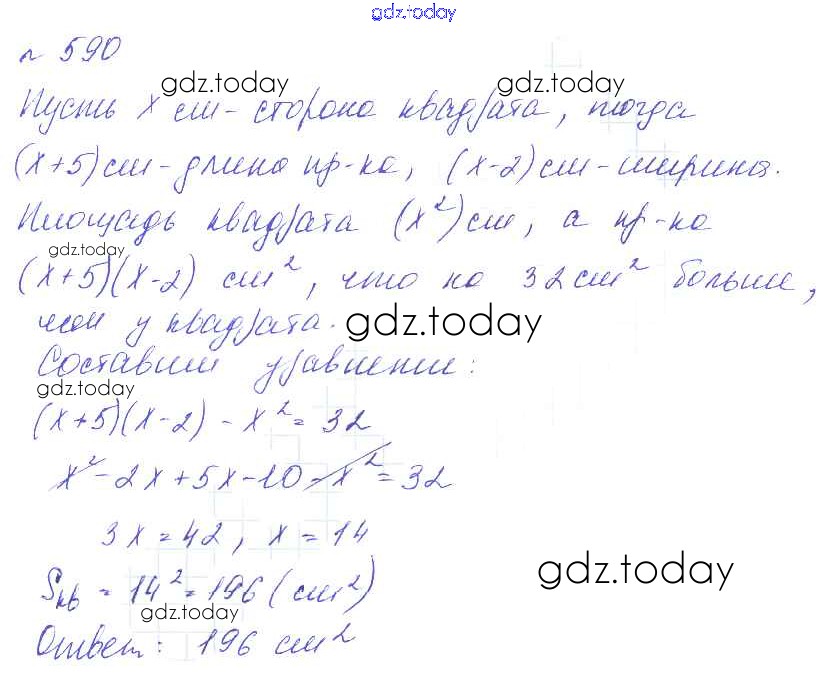 gdz.today
№ 590
gdz.today gdz.today
Пусть x см - сторона квадрата, тогда
(x+5) см - длина пр-ка, (x-2) см - ширина.
Площадь квадрата (x²) см, а пр-ка
gdz.today
(x+5)(x-2) см², что на 32 см² больше,
чем у квадрата. gdz.today
Составим уравнение:
gdz.today
(x+5)(x-2) - x² = 32
x² - 2x + 5x - 10 - x² = 32
3x = 42, x = 14
gdz.today
Sкв = 14² = 196 (см²)
gdz.today
Ответ: 196 см²